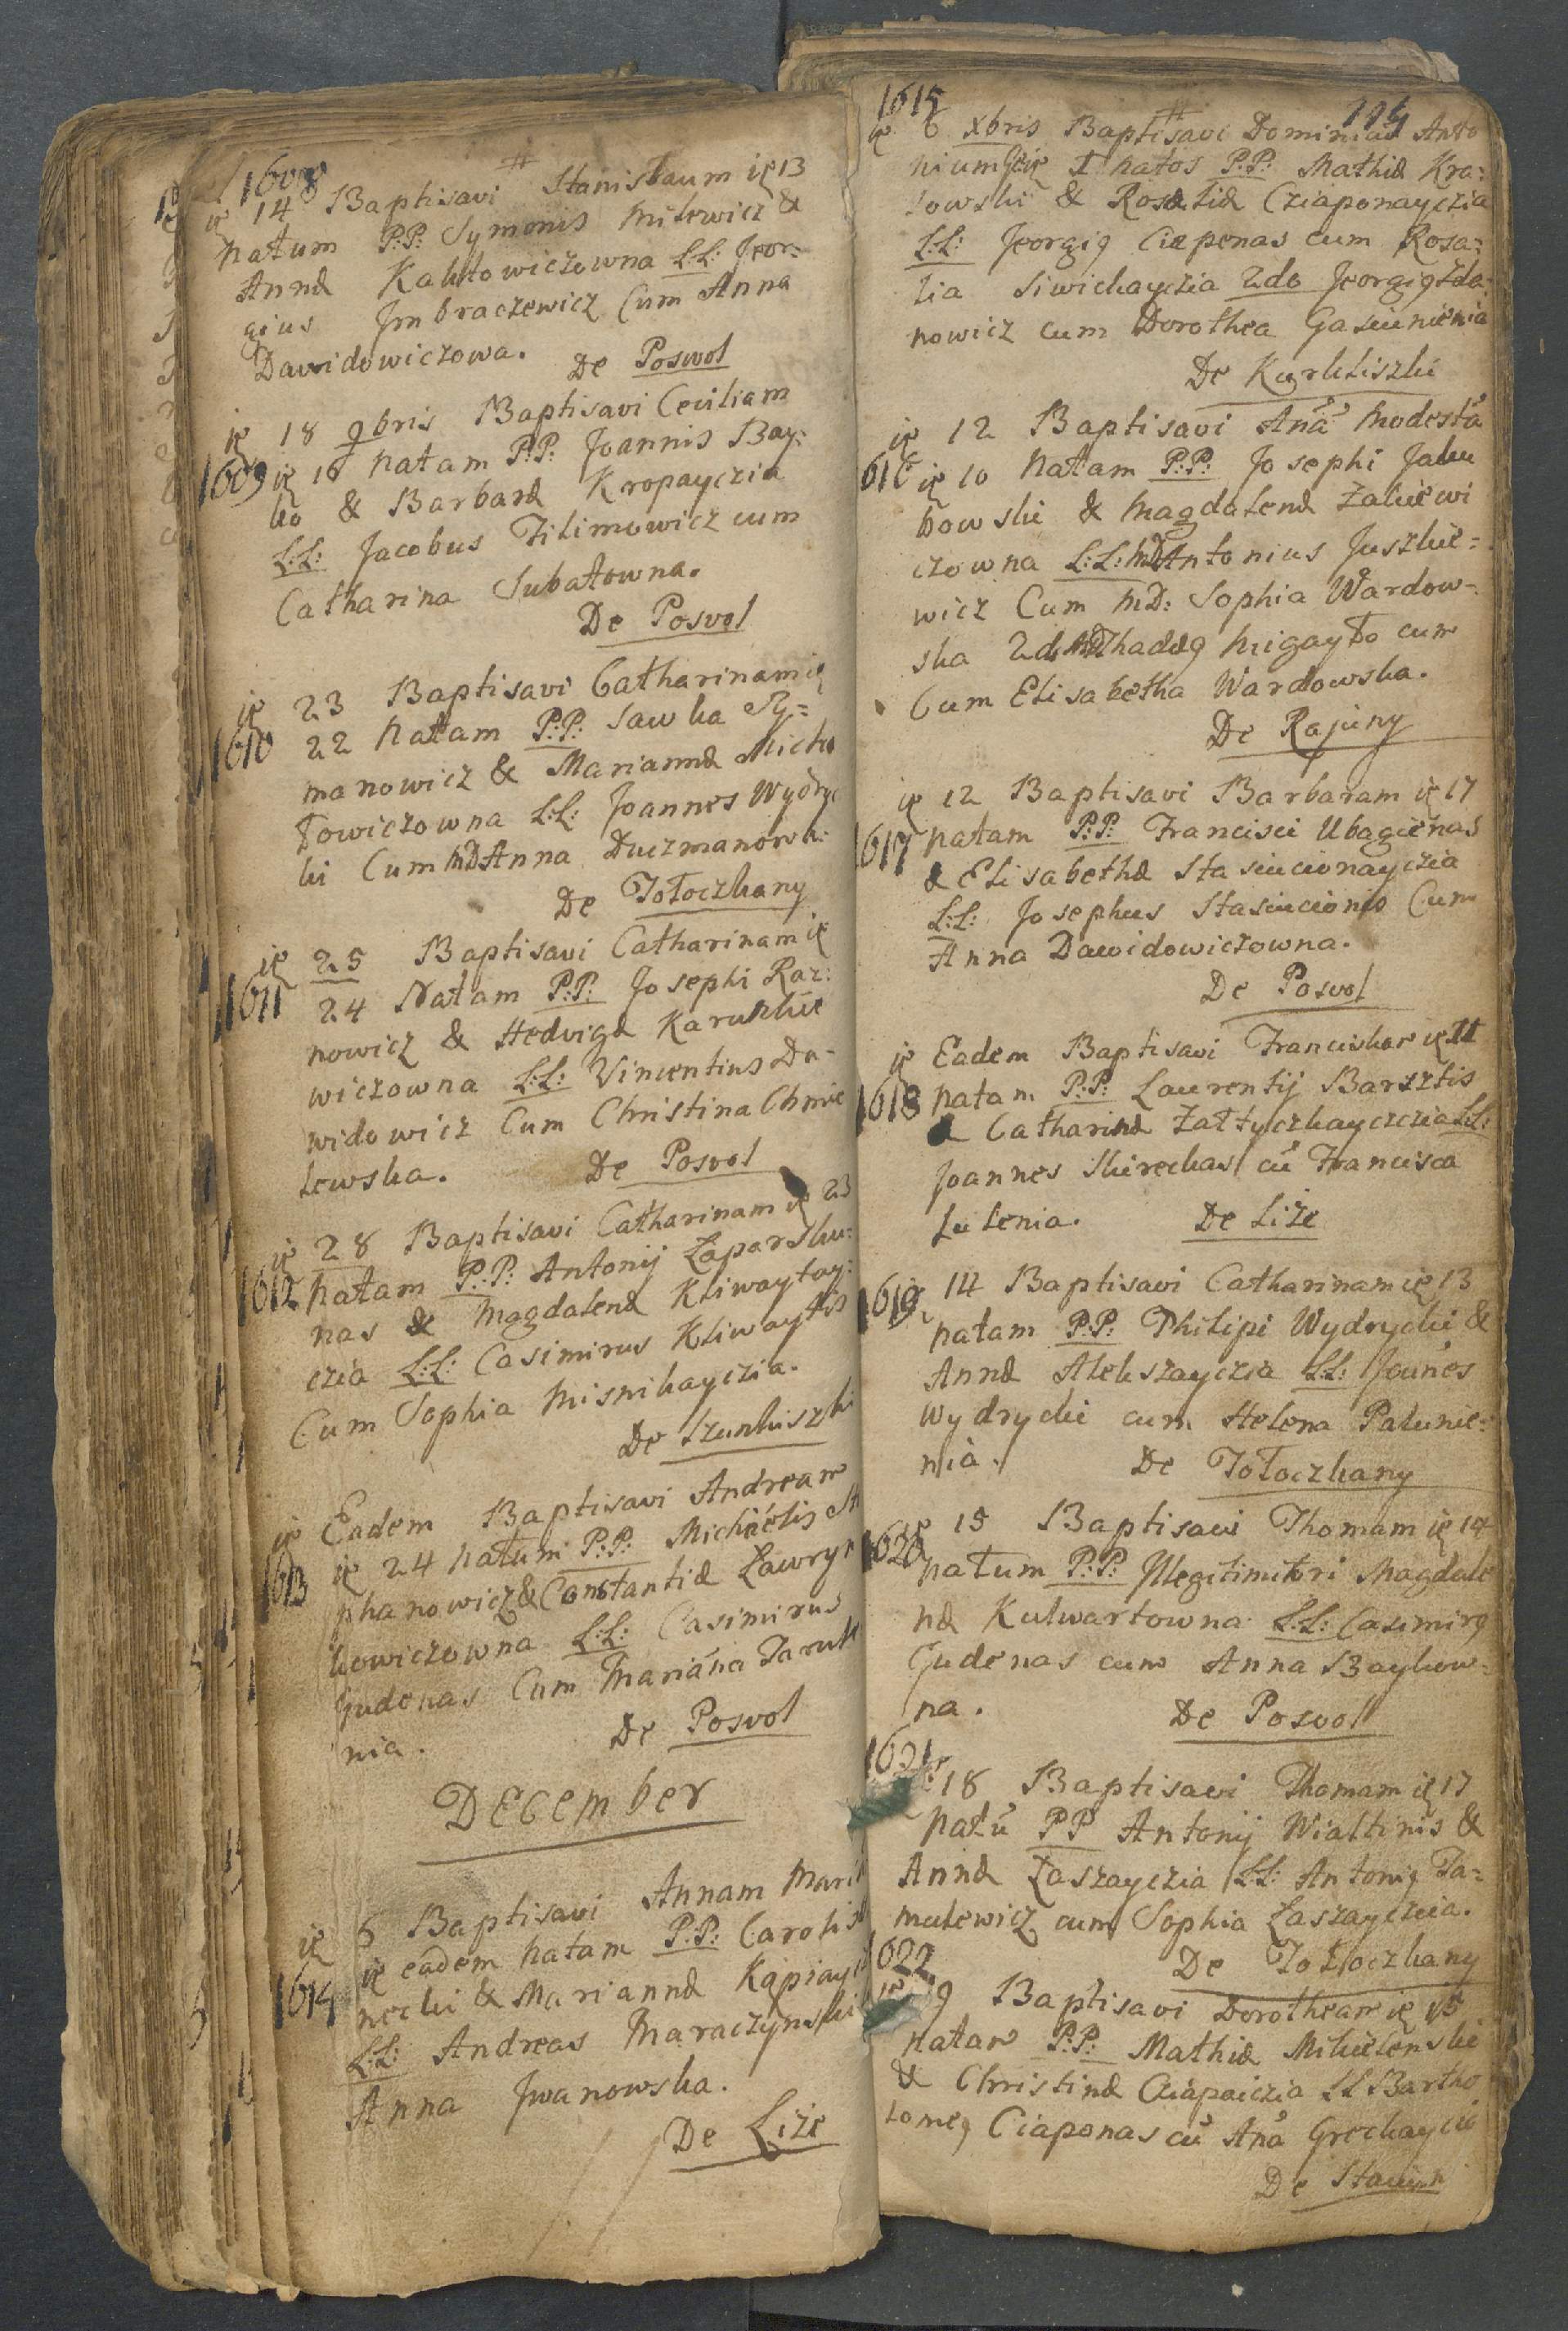 1608
14 Baptisavi Stanislaum ię 13
natum P:P: Symonis Milewicz &
Annæ Kaliłowiczowna L:L: Jeor:
gius Jmbraczewicz Cum Anna
Dawidowiczowa.
De Poswol
ię 18 9bris Baptisavi Ceciliam
1609 ię 16 natam P:P: Joannis Bay:
ko & Barbaræ Kropayczia
L:L: Jacobus Filimowicz cum
Catharina Subatowna.
De Posvol
ię 23 Baptisavi Catharinam ię
1610 22 natam P:P: Sawka Sy=
manowicz & Mariannæ Micha
łowiczowna L:L: Joannes Wydryc
ki Cum MD Anna Duczmanowsk:
De Tołoczkany
ię 25 Baptisavi Catharinam ię
1611 24 Natam P:P: Josephi Raz:
nowicz & Hedvigæ Karuzkie
wiczowna L:L: Vincentius Da-
widowicz Cum Christina Chmie
lewska.
De Posvol
ię 28 Baptisavi Catharinam ię 23
1612 natam P:P: Antonij Łaparsku:
nas & Magdalenæ Kliwaytay:
czia L:L: Casimirus Kliwaytis
Cum Sophia Misnikayczia.
De Szunkiszki
ię Eadem Baptisavi Andream
1613 ię 24 natum P:P: Michaelis St
phanowicz & Constantiæ Ławryn
kowiczowna L:L: Casimirus
Gudenas Cum Mariana Tarult
nia.
De Posvol
December
ię 6 Baptisavi Annam Mari
1614 ię eadem natam P:P: Caroli
necki & Mariannæ Kąpiayc
L:L: Andreas Maraczynski
Anna Jwanowska.
De Liże
1615 114
ię 6 xbris Baptisavi Dominicu Anto
nium natos P:P: Mathiæ Kra:
sowski & Rosaliæ Cziaponayczia
L:L: Jeorgi9 Ciaponas cum Rosa:
lia Siwickayczia 2do Jeorgi9 Żda:
nowicz cum Dorothea Gasiunienia
De Kurkliszki
ię 12 Baptisavi Anã Modestã
1616 ię 10 Natam P:P: Josephi Jaku
bowski & Magdalenæ Zakiewi
czowna L:L: MD Antonius Juszkie=
wicz Cum MD: Sophia Wardow-
ska 2do MD Thade9 Migayło cum
Cum Elisabetha Wardowska.
De Rajuny
ię 12 Baptisavi Barbaram ię 17
1617 natam P:P: Francisci Ubagienas
& Elisabethæ Stasiucionayczia
L:L: Josephus Stasiucionis Cum
Anna Dawidowiczowna.
De Posvol
ię Eadem Baptisavi Franciskam ię 11
1618 natam P:P: Laurentij Barsztis
& Catharinæ Załtyczkayczczia L:L:
Joannes Skireckas cũ Francisca
Lulenia. De Liże
1619 14 Baptisavi Catharinam ię 13
natam P:P: Philipi Wydrycki &
Annæ Alekszayczia L:L: Joañes
Wydrycki cum Helena Palunie=
nia. De Tołoczkany
ię 15 Baptisavi Thomam ię 14
1620 natum P:P: Jllegitimitori Magdale
næ Kulwartowna L:L: Casimir9
Gudenas cum Anna Baykow=
na. De Posvol
1621
18 Baptisavi Thomam ię 17
natũ PP Antonij Wialtinis &
Annæ Łaszayczia L:L: Antoni9 Ta=
mulewicz cum Sophia Łaszayczia.
1622 De Tołłoczkany
ię 19 Baptisavi Dorotheam ię 15
natam P:P: Mathiæ Mikielenski
& Christinæ Ciapaiczia LL Bartho
lome9 Ciaponas cũ Anã Grockaycia
De